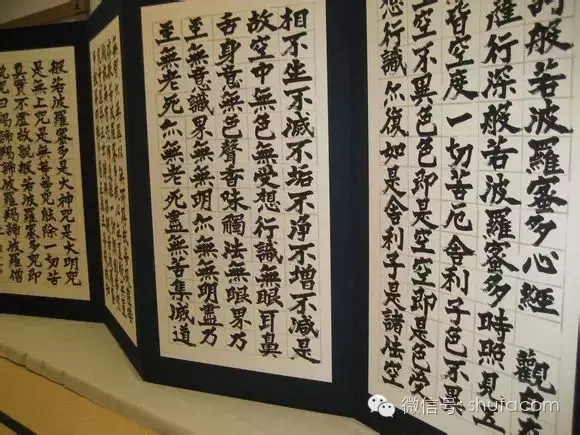 訶般若波羅蜜多心經 觀自在
薩行深般若波羅蜜多時照見五
皆空度一切苦厄舍利子色不異
空空不異色色即是空空即是色受
想行識亦復如是舍利子是諸法空
相不生不滅不垢不淨不增不減是
故空中無色無受想行識無眼耳鼻
舌身意無色聲香味觸法無眼界乃
至無意識界無無明亦無無明盡乃
至無老死亦無老死盡無苦集滅道
般若波羅蜜多是大神咒是大明咒
是無上咒是無等等咒能除一切苦
真實不虛故說般若波羅蜜多咒即
說咒曰羯諦羯諦波羅羯諦波羅僧
微信号: shufa.com